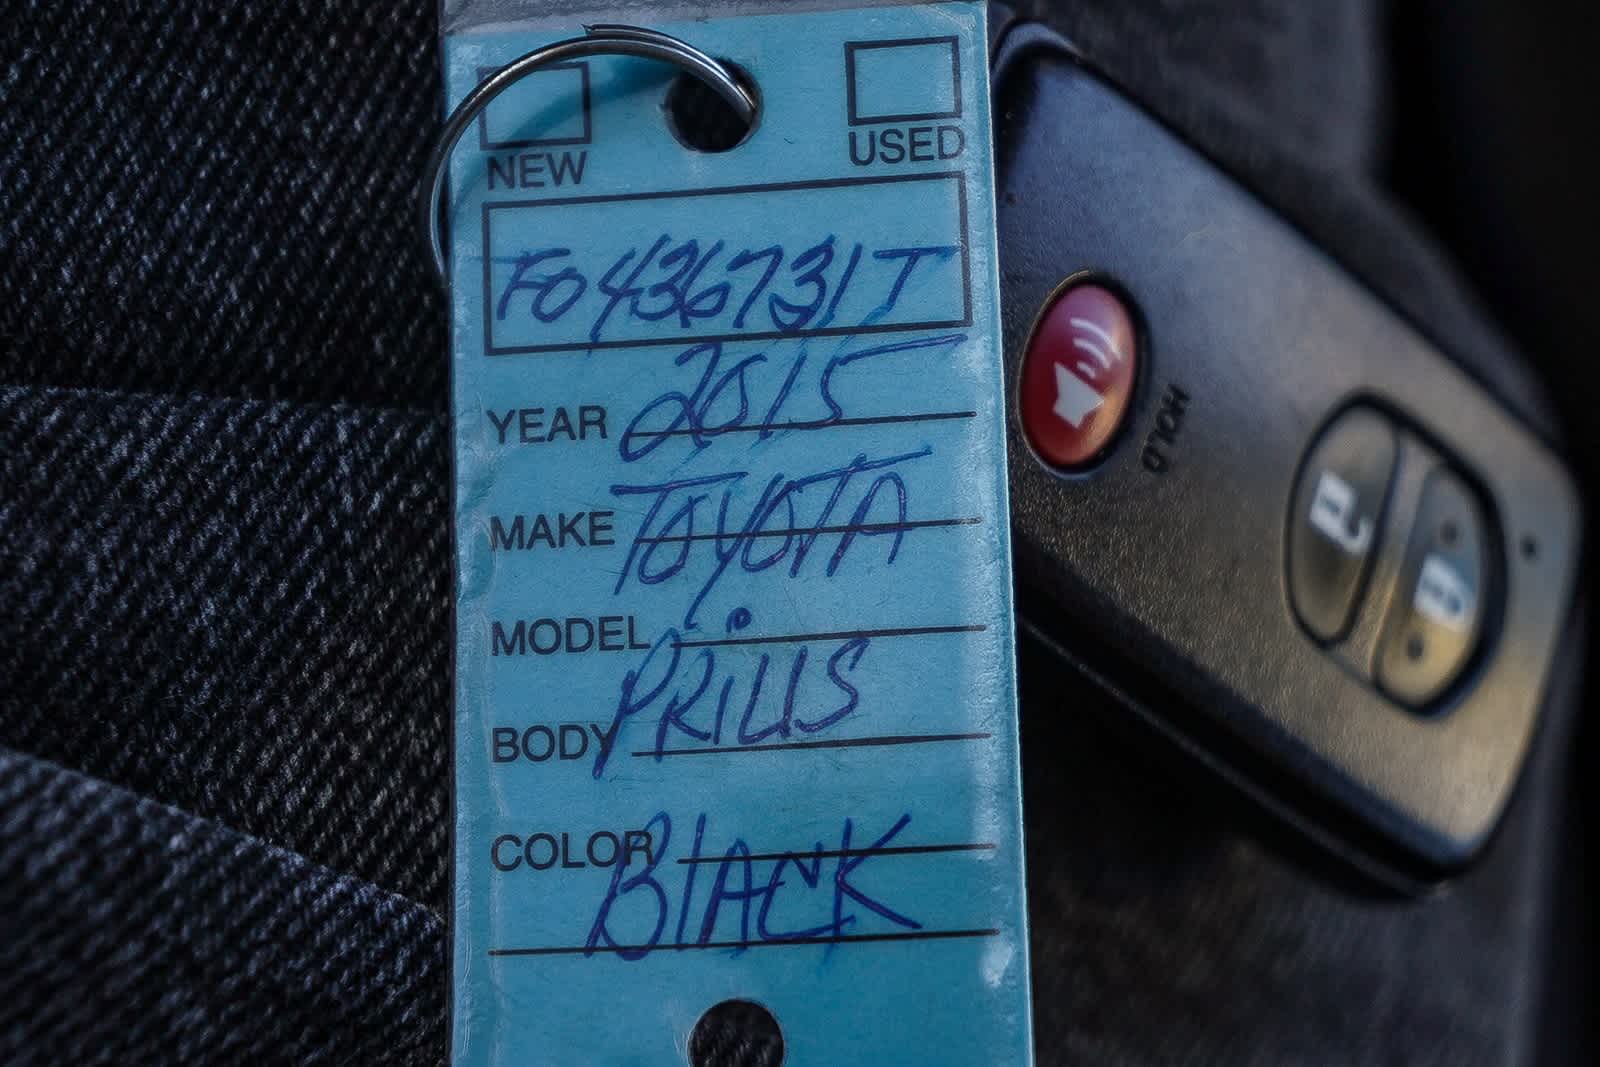 NEW USED
F0436731T
YEAR 2015
MAKE TOYOTA
MODEL
PRiUS
BODY
COLOR
BlACK
HOLD